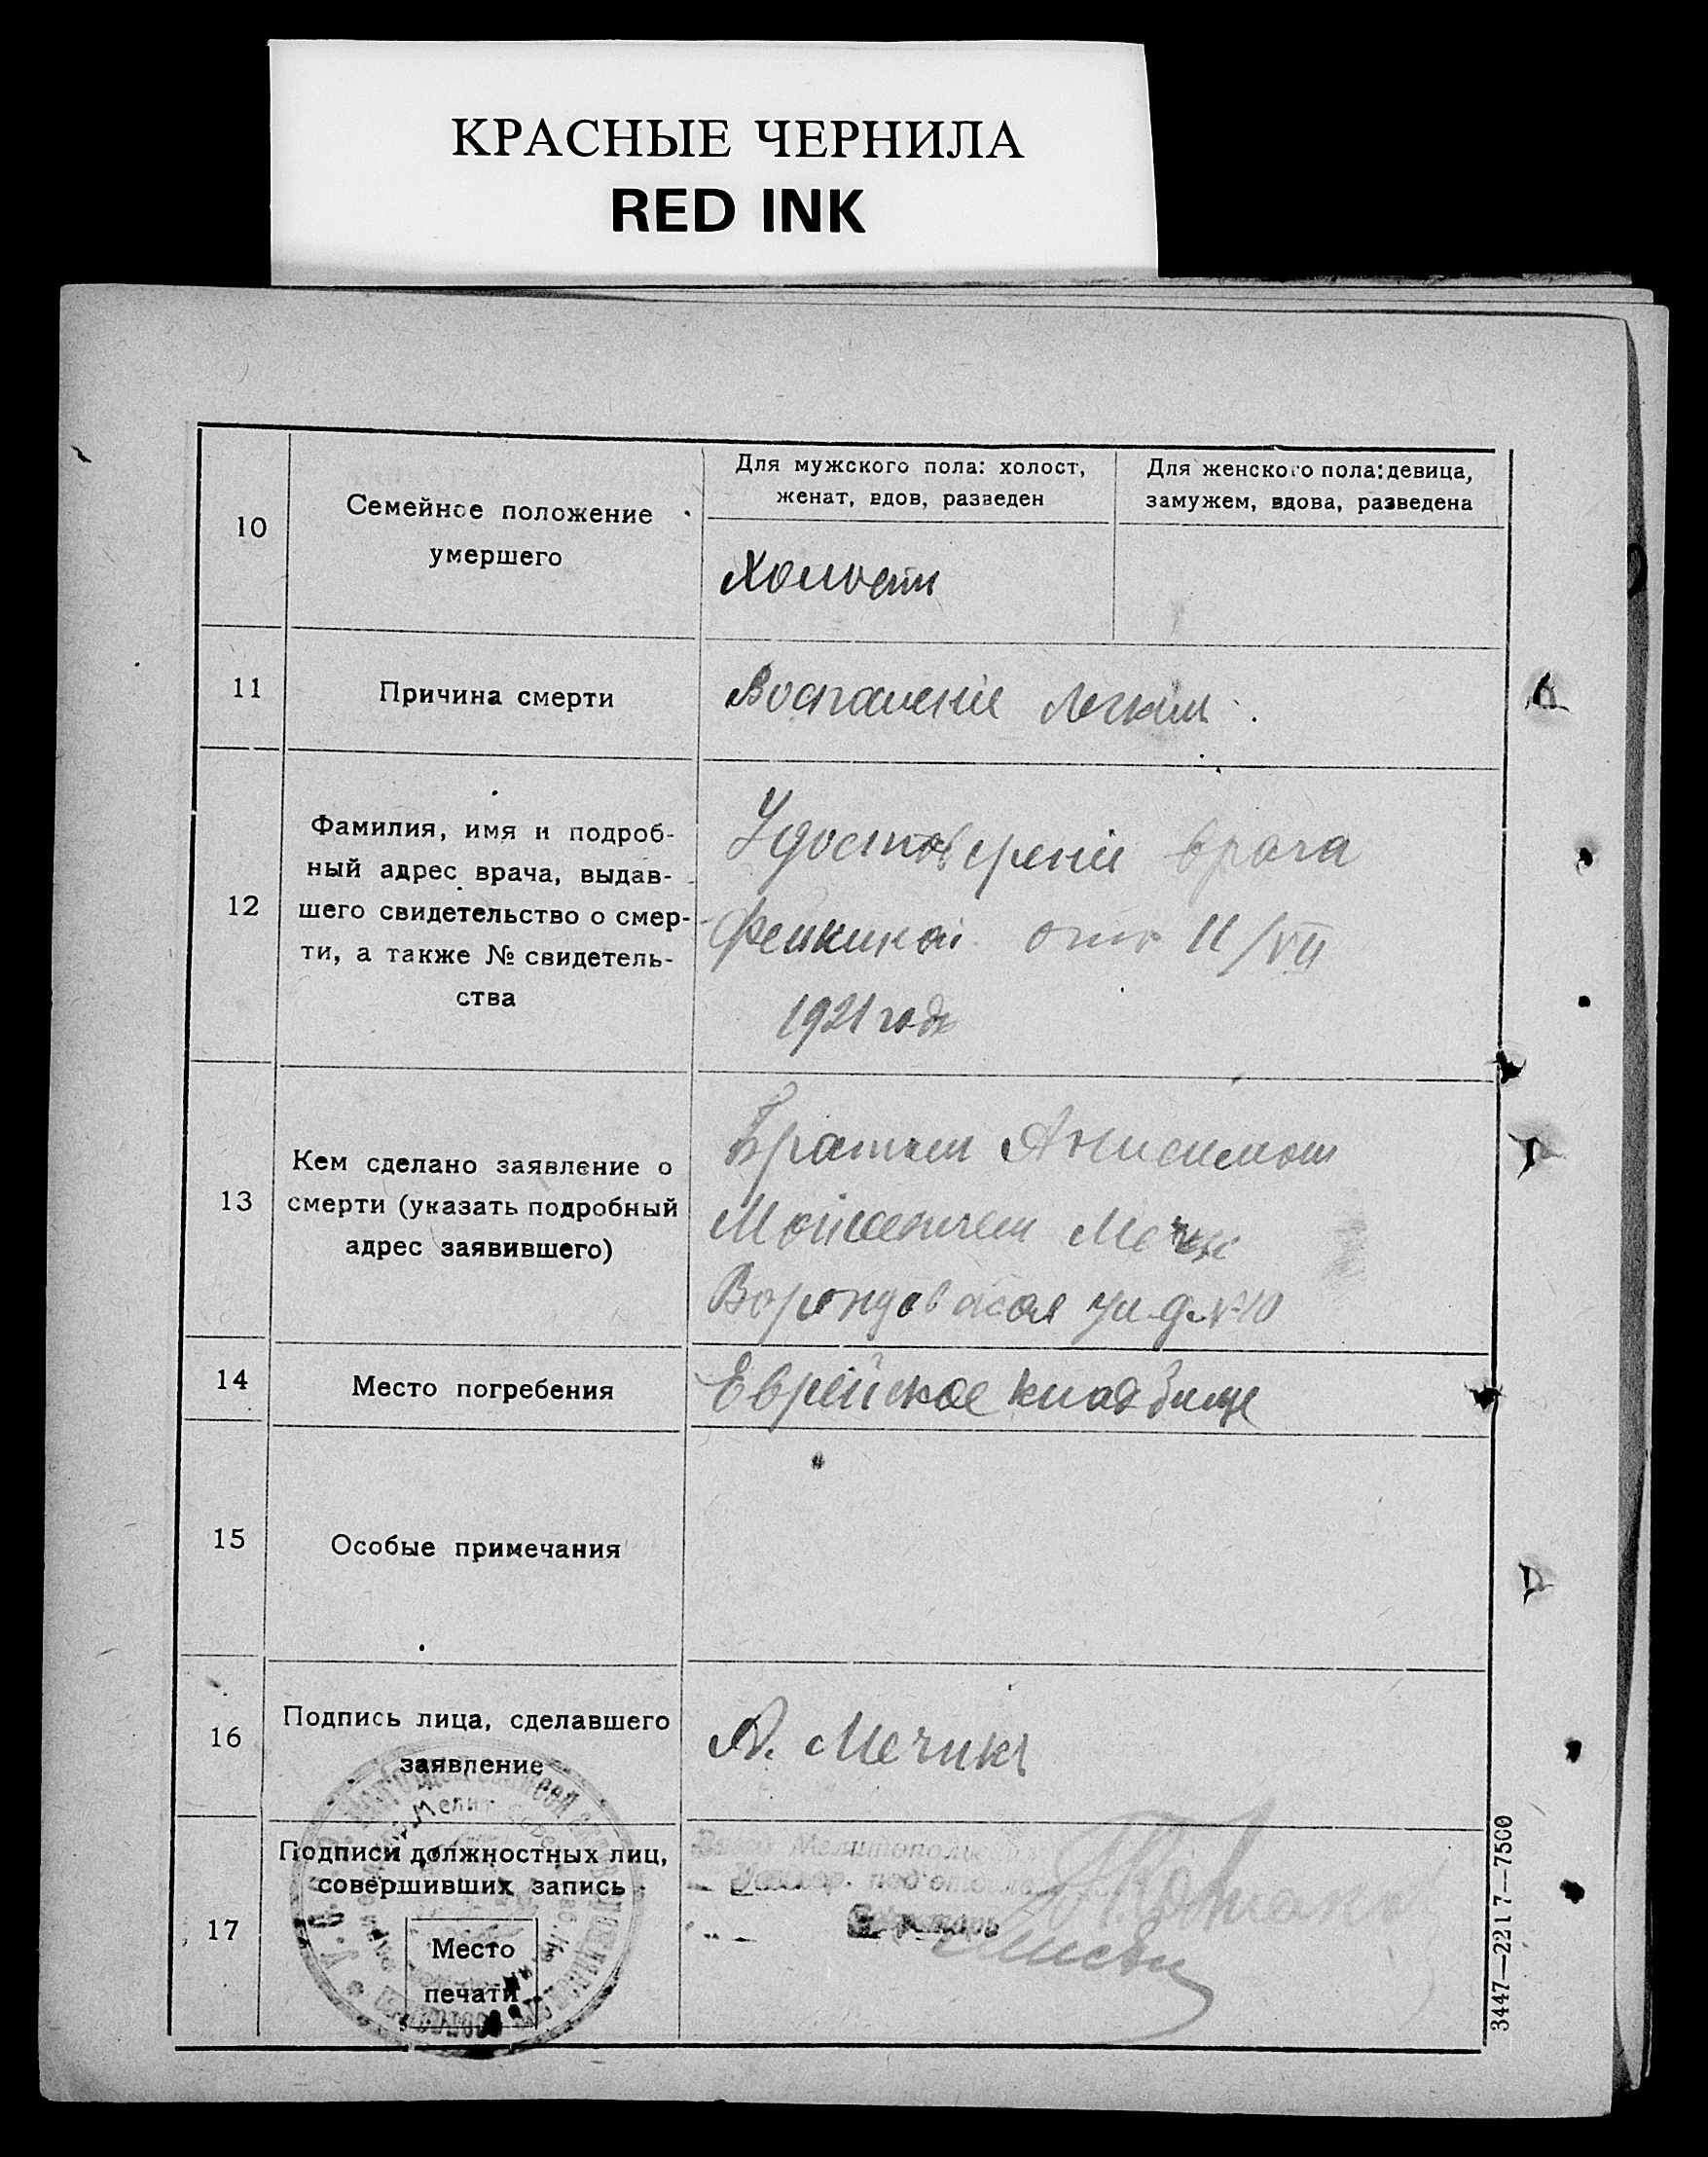 КРАСНЫЕ ЧЕРНИЛА
RED INK
10
Семейное положение
умершего
Для мужского пола: холост,
женат, вдов, разведен
Для женского пола: девица,
замужем, вдова, разведена
Холост
11
Причина смерти
Воспаленіе легких.
12
Фамилия, имя и подроб-
ный адрес врача, выдав-
шего свидетельство о смер-
ти, а также № свидетель-
ства
Удостоверениі врача
от 11/VII
1921 года
13
Кем сделано заявление о
смерти (указать подробный
адрес заявившего)
Братом Анисимом
Моисеевичем Мечик
ул. д. №10
14
Место погребения
Еврейское кладбище
15
Особые примечания
16
Подпись лица, сделавшего
заявление
А. Мечикъ
17
Подписи должностных лиц,
совершивших запись
Место
печати
Мелитопольск
под'отдел
Секретарь
3447—2217—7500